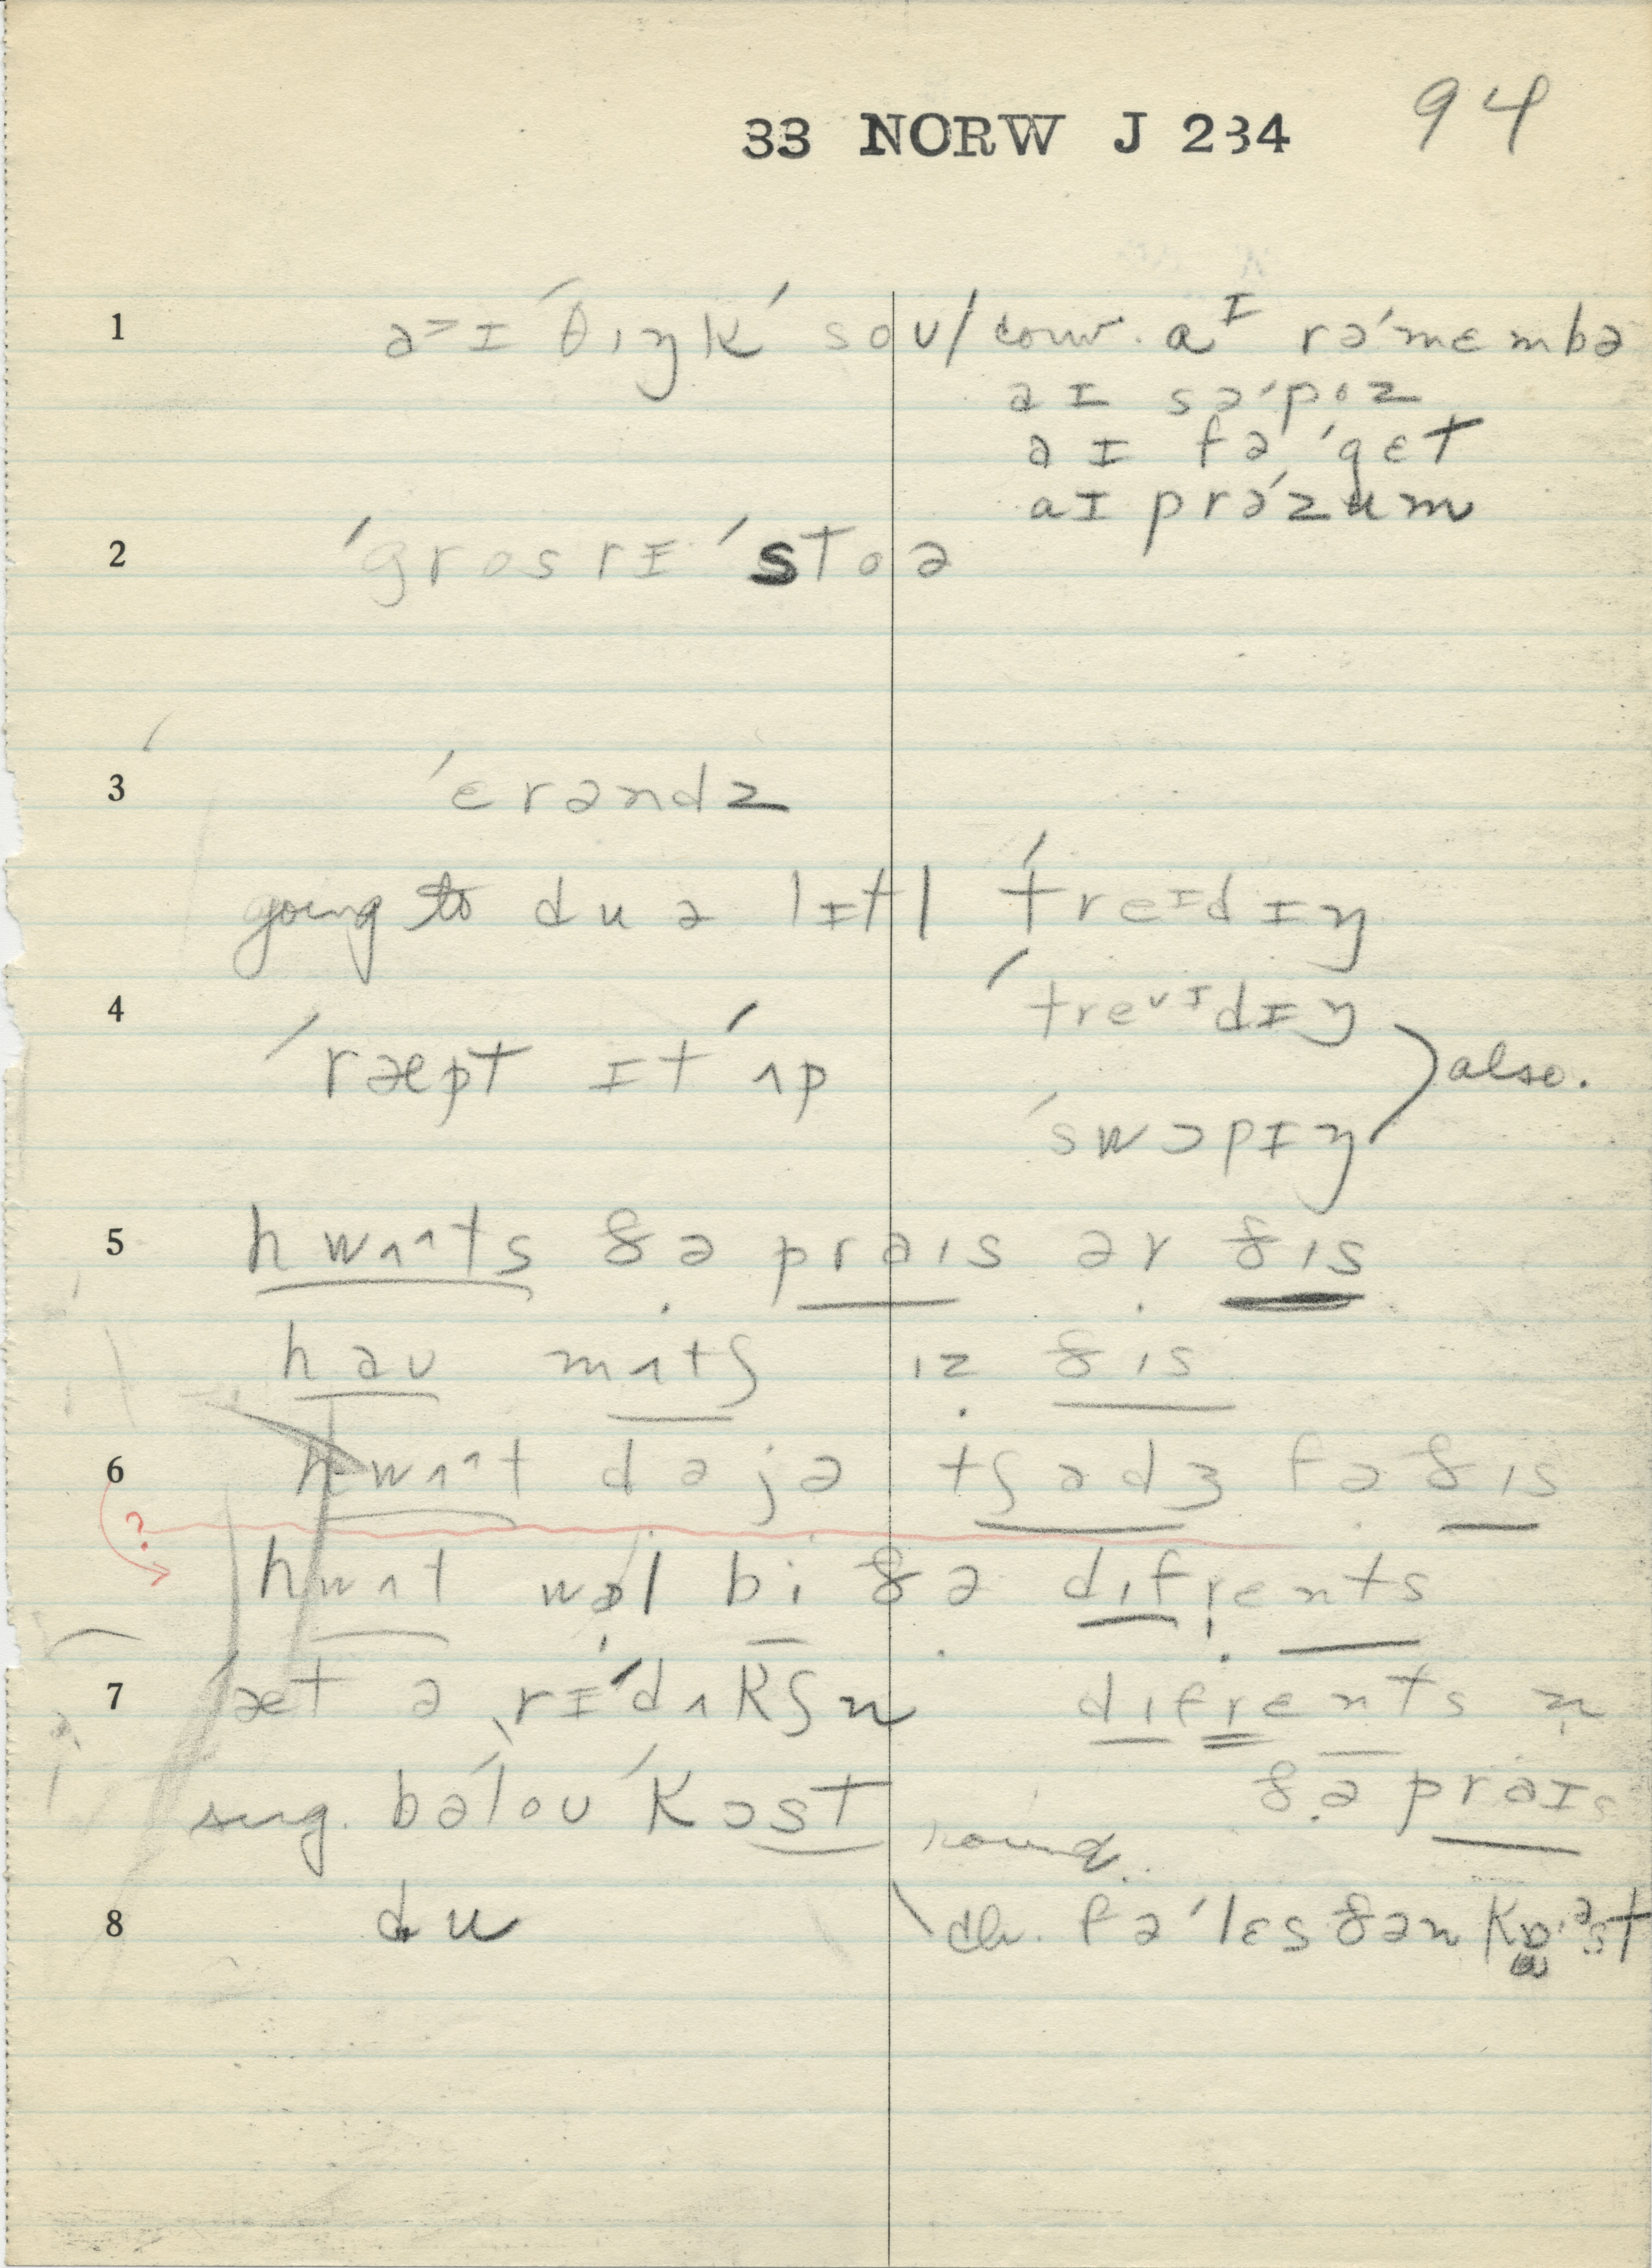 33 NORW J 234 94
1 a˃ɪ ˈθɪŋk ˈsoʊ / conv. aᴵ rəˈmɛmbə
aɪ səˈpoz
aɪ fəˈgɛt
aɪ prəˈzum
2 ˈgrosrɪ ˈstoə
3 ˈerəndz
going to du ə lɪtl ˈtreᴵdɪŋ
4 ˈtre˅ᴵdɪŋ
ˈræpt ɪt ˈʌp
ˈswɔpɪŋ
also.
5 hwʌ^ts ðə praɪs ər ðɪs
haʊ mʌtʃ ɪz ðɪs
6 hwʌ^t dəjə tʃadʒ fə ðɪs
?
hwʌt wəl bi ðə dɪfrents
7 ˈæt ə rɪˈdʌkʃn
dɪfrents ɪn
ðə praɪs
sug. bəˈloʊ ˈkɔst
8 du
ch. fə ˈlɛs ðən